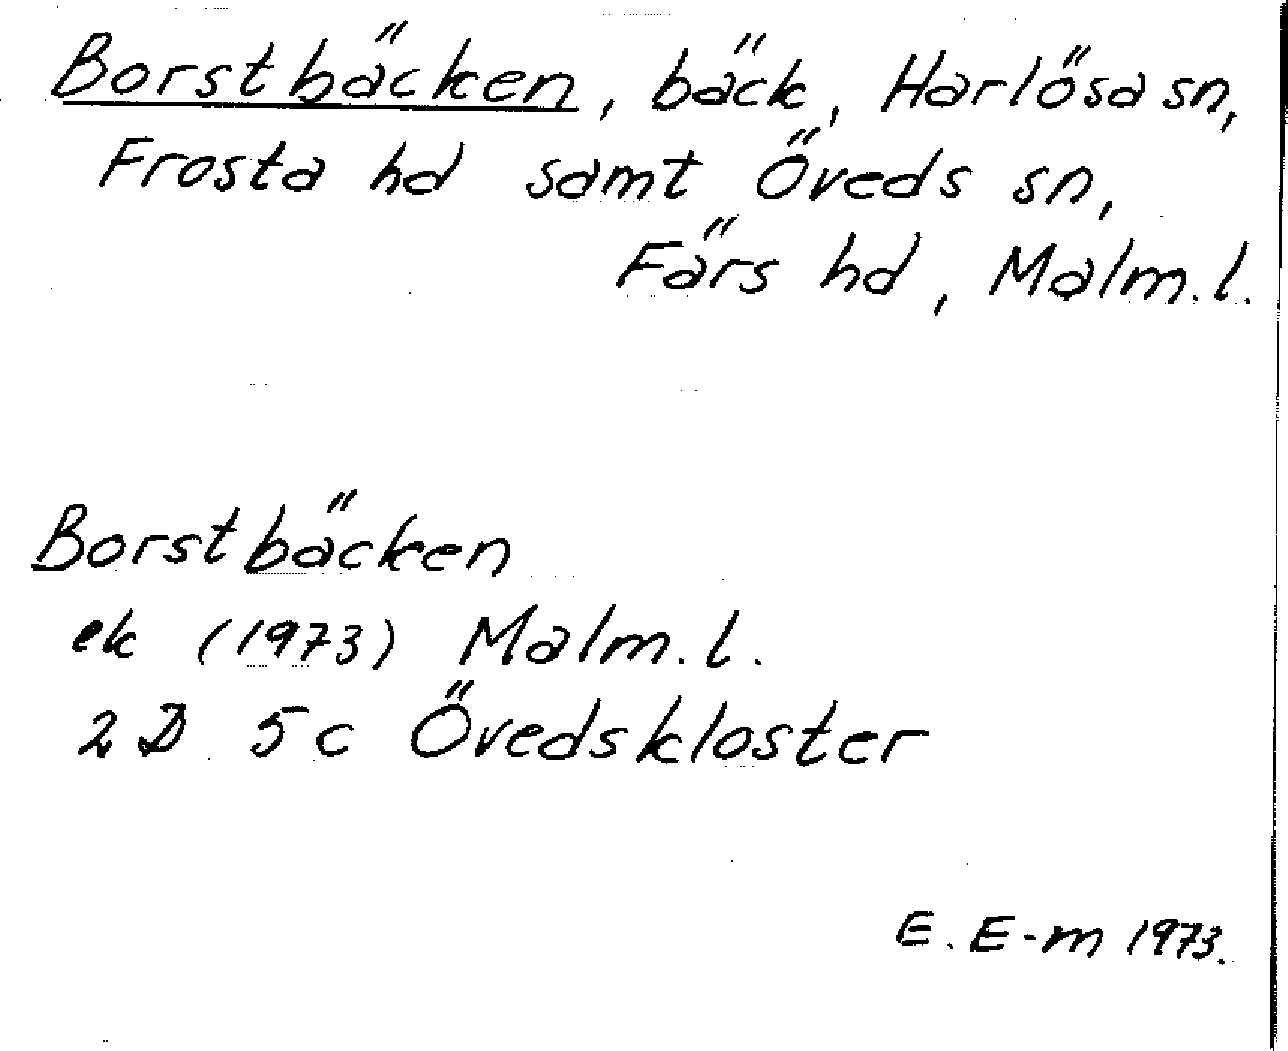 Borstbäcken, bäck, Harlösa sn,
Frosta hd samt Öveds sn,
Färs hd, Malm. l.
Borstbäcken
ek (1973) Malm. l.
2 D 5 c Övedskloster
E. E-m 1973.